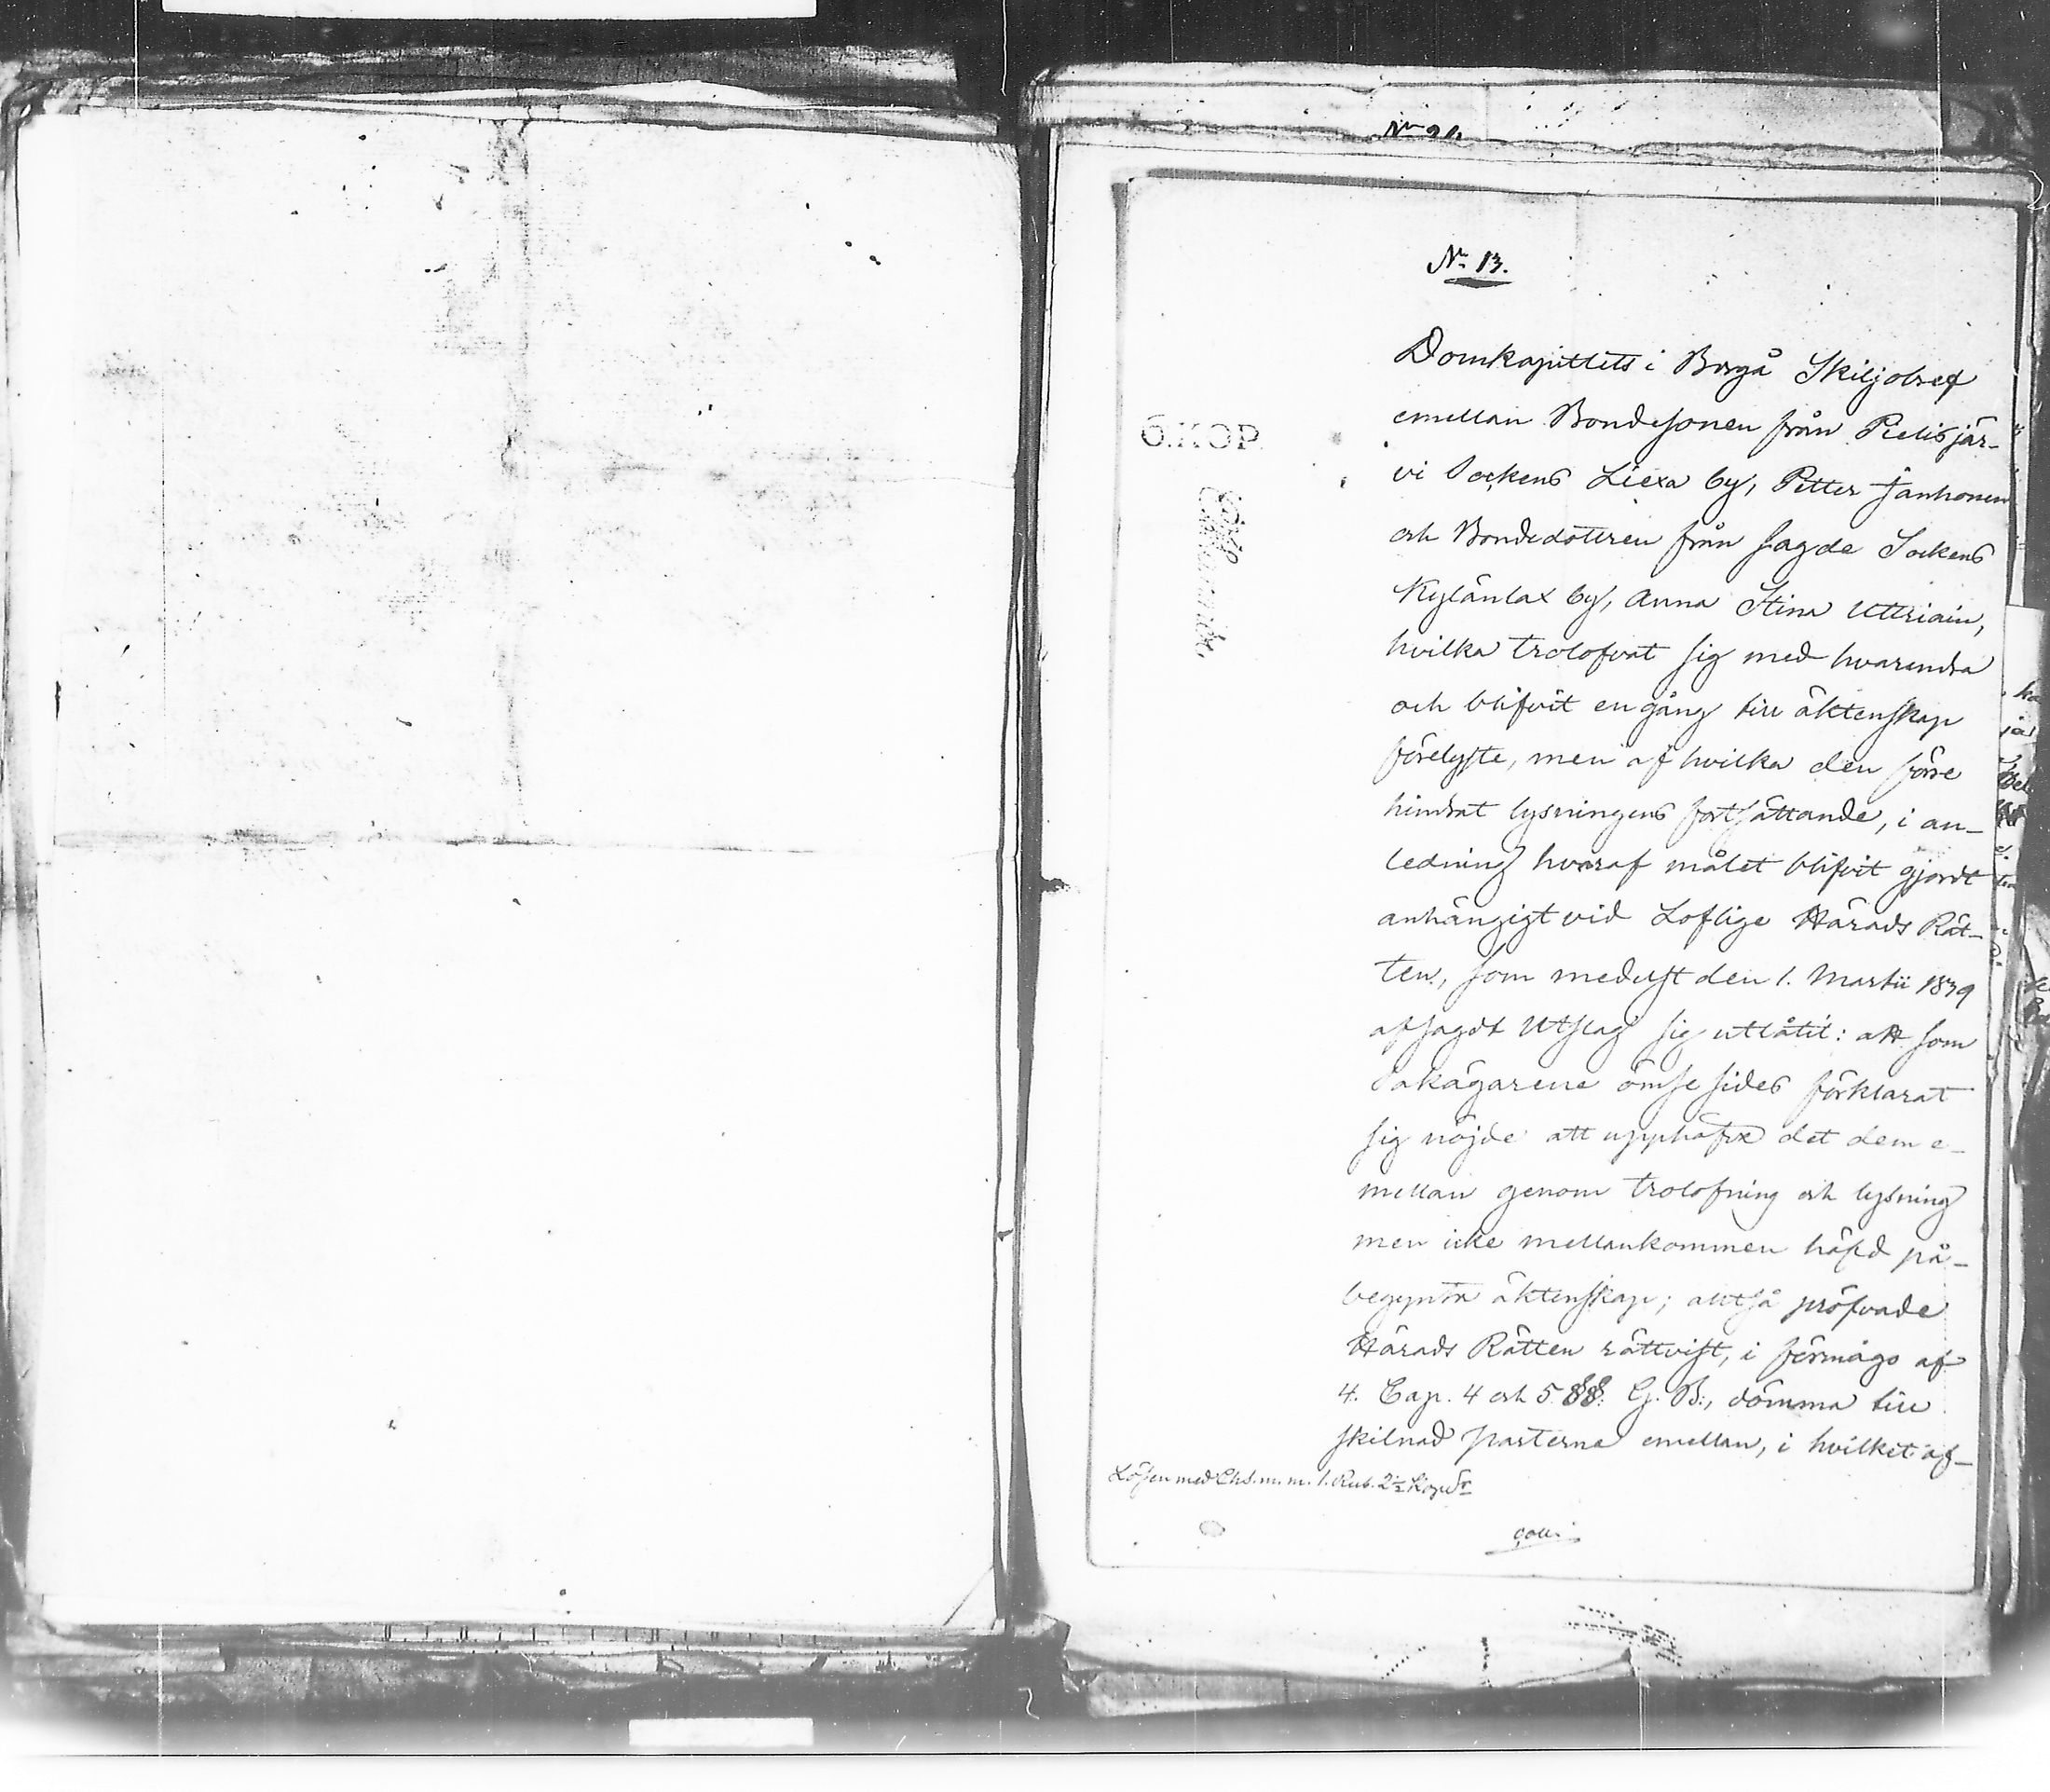 No 20.
No 13.
Domkapitlets i Borgå Skiljobref
emellan Bondesonen från Pielisjär-
vi Sockens Liexa by, Petter Janhonen
och Bondedottren från sagde Sockens
Kylänlax by, Anna Stina Uttriain,
hvilka trolofvat sig med hvarandra
och blifvit en gång till äktenskap
förelyste, men af hvilka den förre
hindrat lysningens fortsättande, i an-
ledning hvaraf målet blifvit gjordt
anhängigt vid Loflige Härads Rät-
ten, som medelst den 1. Martii 1839
afsagdt Utslag sig utlåtit: att som
Sakägarene ömse sides förklarat
sig nöjde att upphäfva det dem e-
mellan genom trolofning och lysning
men icke mellankommen häfd på-
begynta äktenskap; alltså pröfvade
Härads Rätten rättvist, i förmågo af
4. Cap. 4 och 5 §§. G. B., dömma till
skilnad parterne emellan, i hvilket af-
6.KOP.
Lösen med Chs. m. m. 1. Rub. 2½ Kop. Sr
Coll.